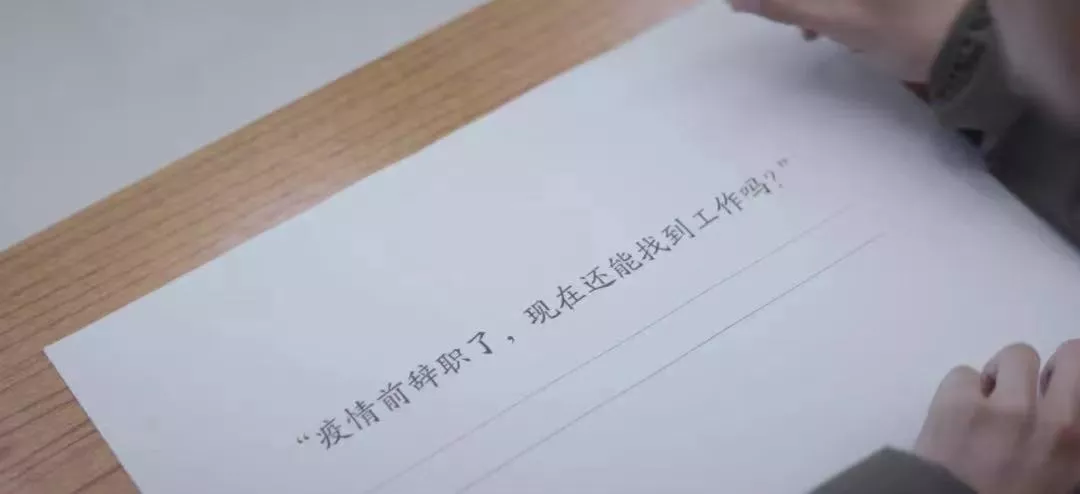 “疫情前辞职了，现在还能找到工作吗?”